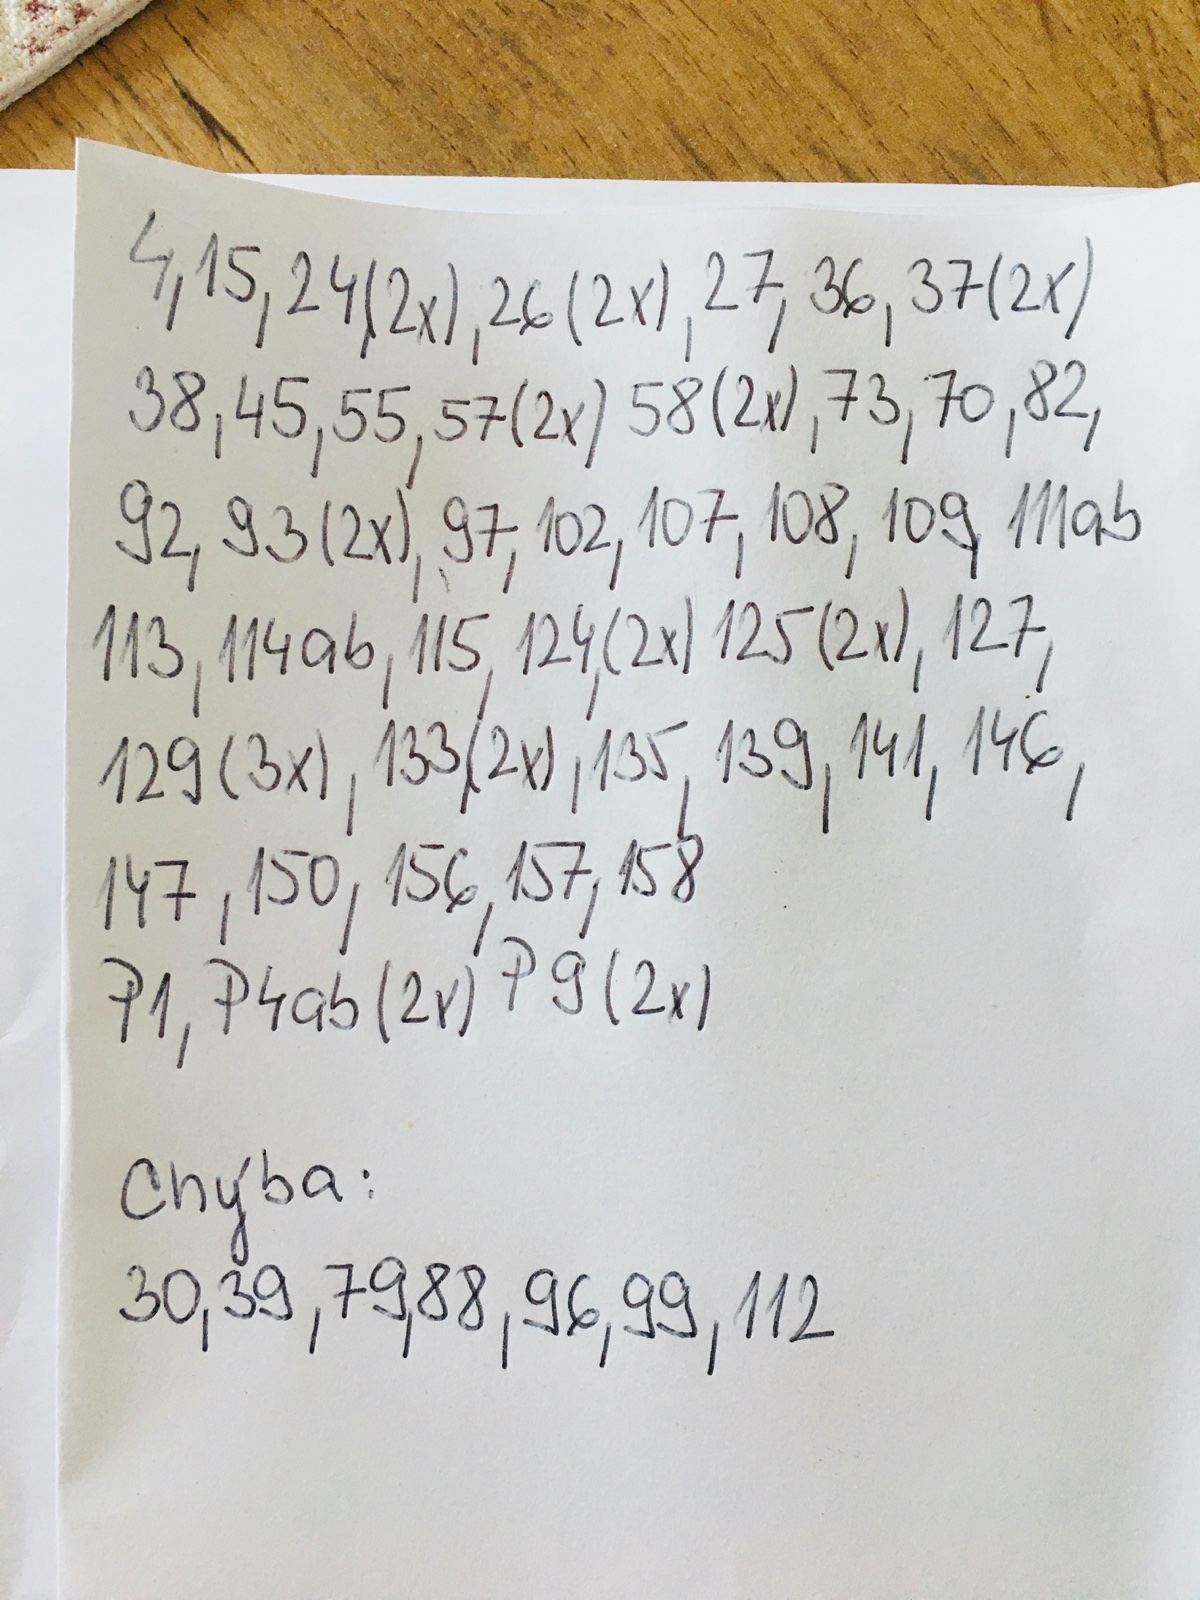 4, 15, 24(2x), 26(2x), 27, 36, 37(2x)
38, 45, 55, 57(2x) 58(2x), 73, 70, 82,
92, 93(2x), 97, 102, 107, 108, 109, 111ab
113, 114ab, 115, 124,(2x) 125(2x), 127,
129(3x), 133(2x), 135, 139, 141, 146,
147, 150, 156, 157, 158
P1, P4ab(2x) P9(2x)
Chýba:
30, 39, 79, 88, 96, 99, 112